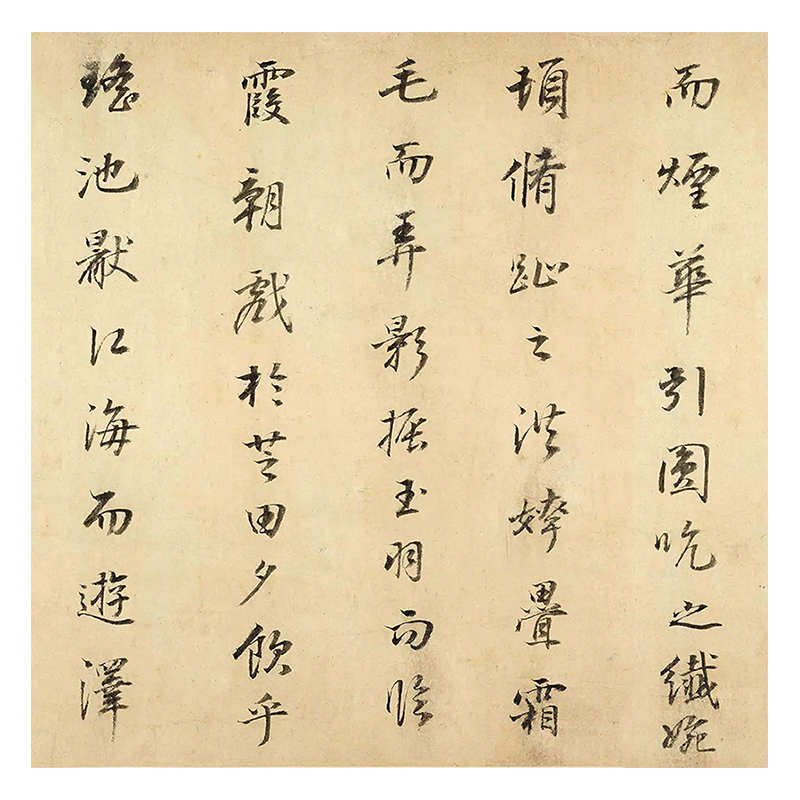 而煙華引圓吭之纖婉
頓脩趾之洪姱疊霜
毛而弄影振玉羽而臨
霞朝戲於芝田夕飲乎
瑤池猒江海而遊澤